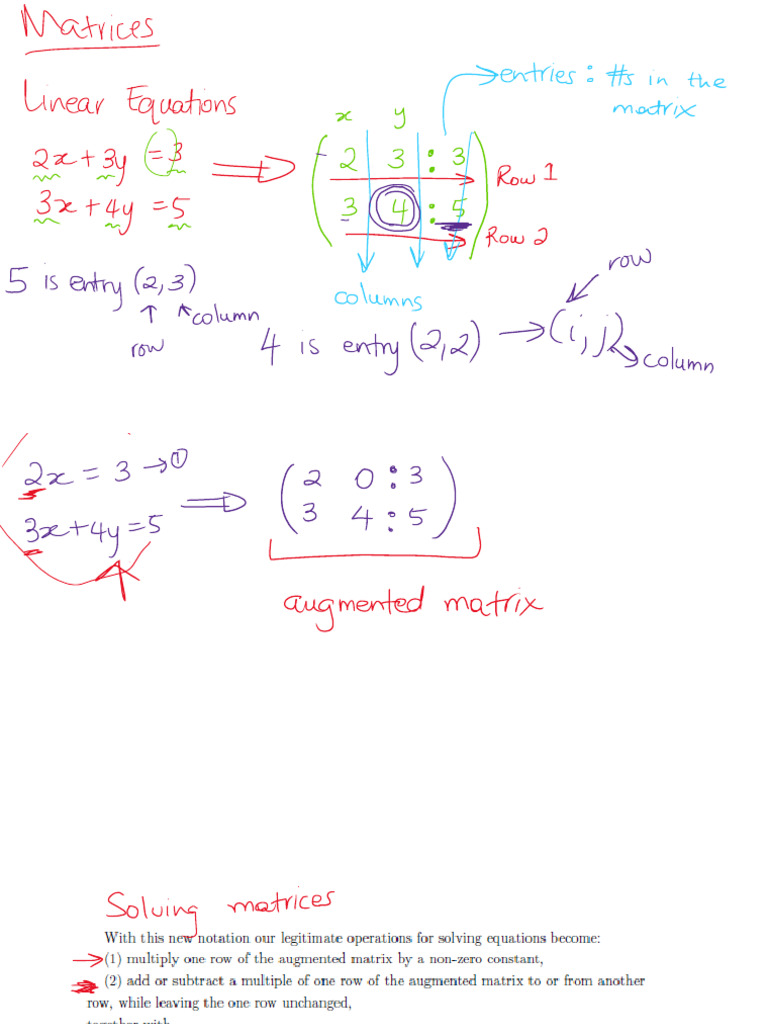 Matrices
entries: #s in the
matrix
Linear Equations
x y
2x + 3y = 3
2 3 : 3
Row 1
3x + 4y = 5
3 4 : 5
Row 2
5 is entry (2,3)
columns
row
column
row
4 is entry (2,2) → (i,j)
column
2x = 3 → ①
3x + 4y = 5
2 0 : 3
3 4 : 5
augmented matrix
Solving matrices
With this new notation our legitimate operations for solving equations become:
(1) multiply one row of the augmented matrix by a non-zero constant,
(2) add or subtract a multiple of one row of the augmented matrix to or from another
row, while leaving the one row unchanged,
together with